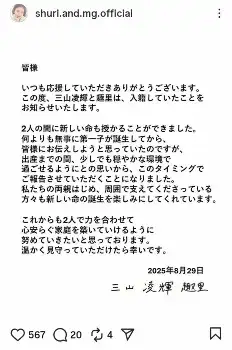 shuri.and.mg.official
皆様
いつも応援していただきありがとうございます。
この度、三山凌輝と趣里は、入籍していたことを
お知らせいたします。
2人の間に新しい命も授かることができました。
何よりも無事に第一子が誕生してから、
皆様にお伝えしようと思っていたのですが、
出産までの間、少しでも穏やかな環境で
過ごせるようにとの思いから、このタイミングで
ご報告させていただくことになりました。
私たちの両親はじめ、周囲で支えてくださっている
方々も新しい命の誕生を楽しみにしてくれています。
これからも2人で力を合わせて
心安らぐ家庭を築いていけるように
努めていきたいと思っております。
温かく見守っていただけたら幸いです。
2025年8月29日
三山 凌輝 趣里
567 20 4